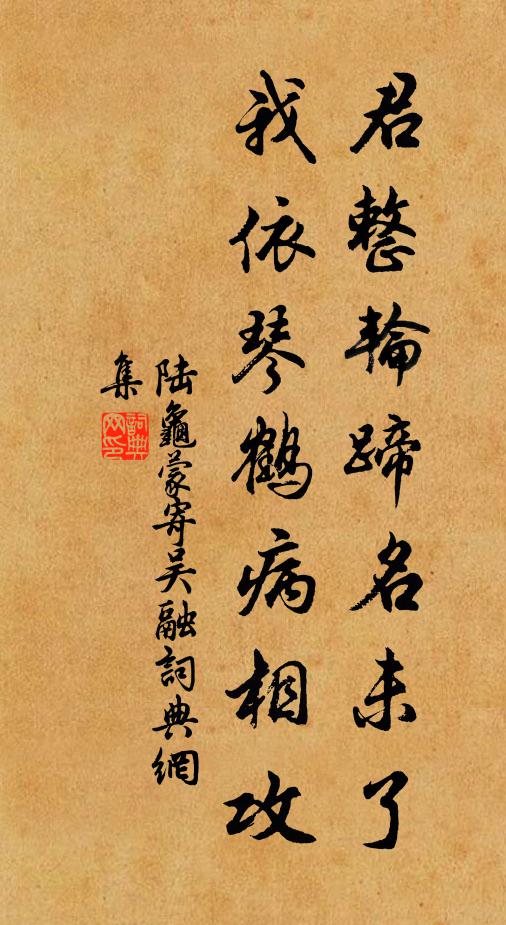 君整輪蹄名未了
我依琴鶴病相攻
陸龜蒙寄吳融詞典網
集
詞典網印